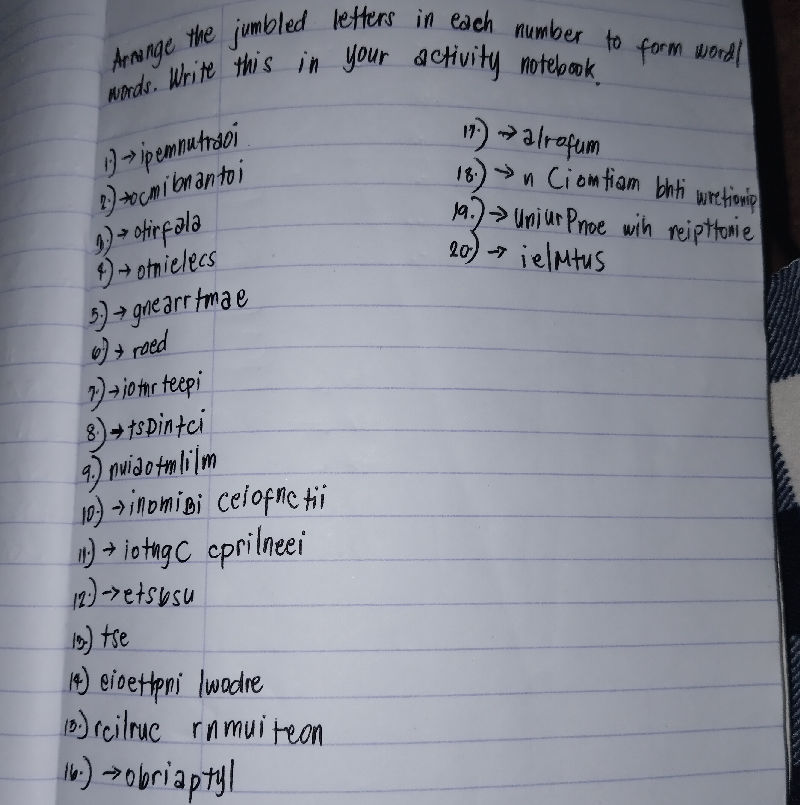 Arrange the jumbled letters in each number to form word/
words. Write this in your activity notebook.
1.) → ipemnutraoi
2.) → ocmibnantoi
3.) → otirfala
4.) → otnielecs
5.) → gnearrtmae
6) → roed
7.) → iotnrteepi
8.) → tsDintci
9.) nuiaotmlilm
10.) → inomiBi celofnctii
11.) → iotngC cprilneei
12.) → etsbsu
13.) tse
14.) eioettpni lwodre
15.) rcilruc rnmuiteon
16.) → obriaptyl
17.) → alrofum
18.) → n Ciomtiam bhti wretionip
19.) → UniurPnoe wih reipttonie
20.) → ielMtus